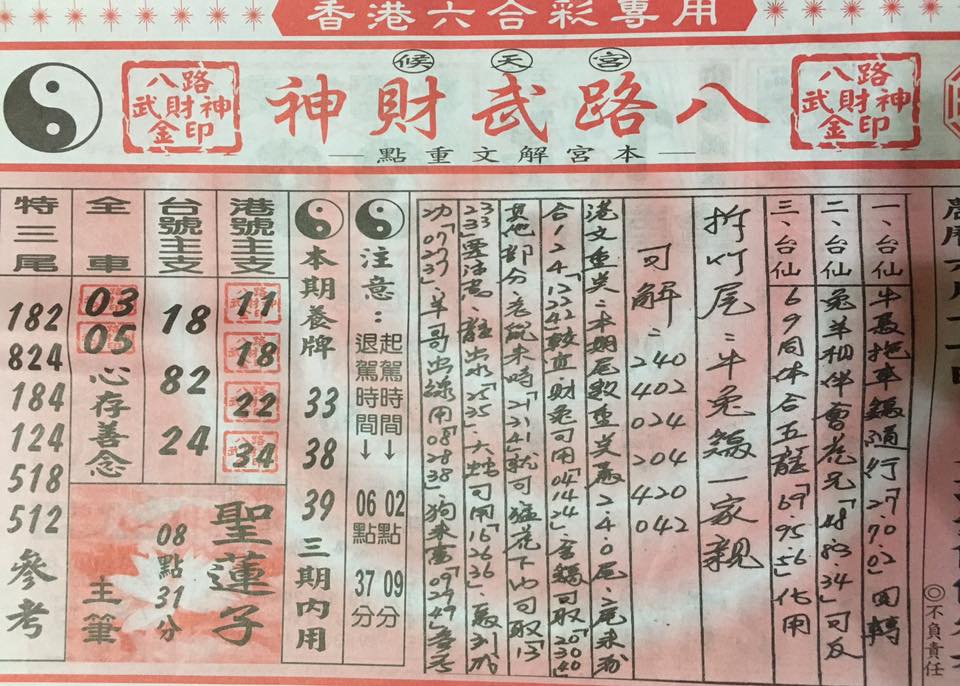 香港六合彩專用
宮天候
八路武財神
八路
武財神
金印
八路
武財神
金印
本宮解文重點
一、台仙 牛馬拖車鷄過行「27.70.02」回轉
二、台仙 兔羊相伴會虎兄「48.83.34」可反
三、台仙 69同体合五龍「69.95.56」化用
拆竹尾:斗兔鷄一家親
可解:
240
402
024
204
420
042
港文重点:本期尾數重点為2.4.0尾,2尾來
合1.2.4「12.22.42」較宜財兔可用「04.14.24」金鷄可取「20.30.40」
其他部分老鼠來時「21.41」就可猛虎下山可取「13
23.33」靈活高,龍出水「25.35」大蛇可用「16.26.36」馬到成
功「07.27.37」羊哥出線用「08.28.38」狗來富「09.29.49」參考
注意:
起駕時間↓ 02點09分
退駕時間↓ 06點37分
本期養牌 33 38 39 三期內用
港號主支
11
18
22
34
台號主支
18
82
24
全車
03
05
心存善念
聖蓮子
08點31分
主筆
特三尾
182
824
184
124
518
512
參考
◎不負責任